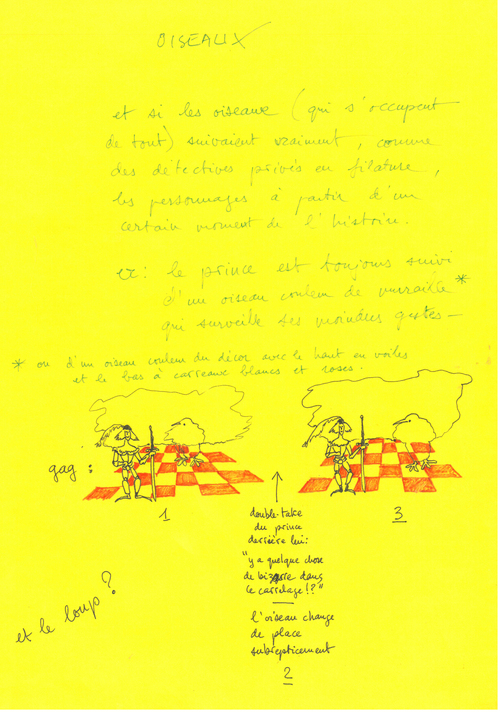 OISEAUX
et si les oiseaux (qui s'occupent
de tout) suivaient vraiment, comme
des détectives privés en filature,
les personnages à partir d'un
certain moment de l'histoire.
ex: le prince est toujours suivi
d'un oiseau couleur de muraille*
qui surveille ses moindres gestes—
* ou d'un oiseau couleur du décor avec le haut en voiles
et le bas à carreaux blancs et roses.
gag:
1
3
double-take
du prince
derrière lui:
"y a quelque chose
de bizarre dans
le carrelage!?"
l'oiseau change
de place
subrepticement
2
et le loup?